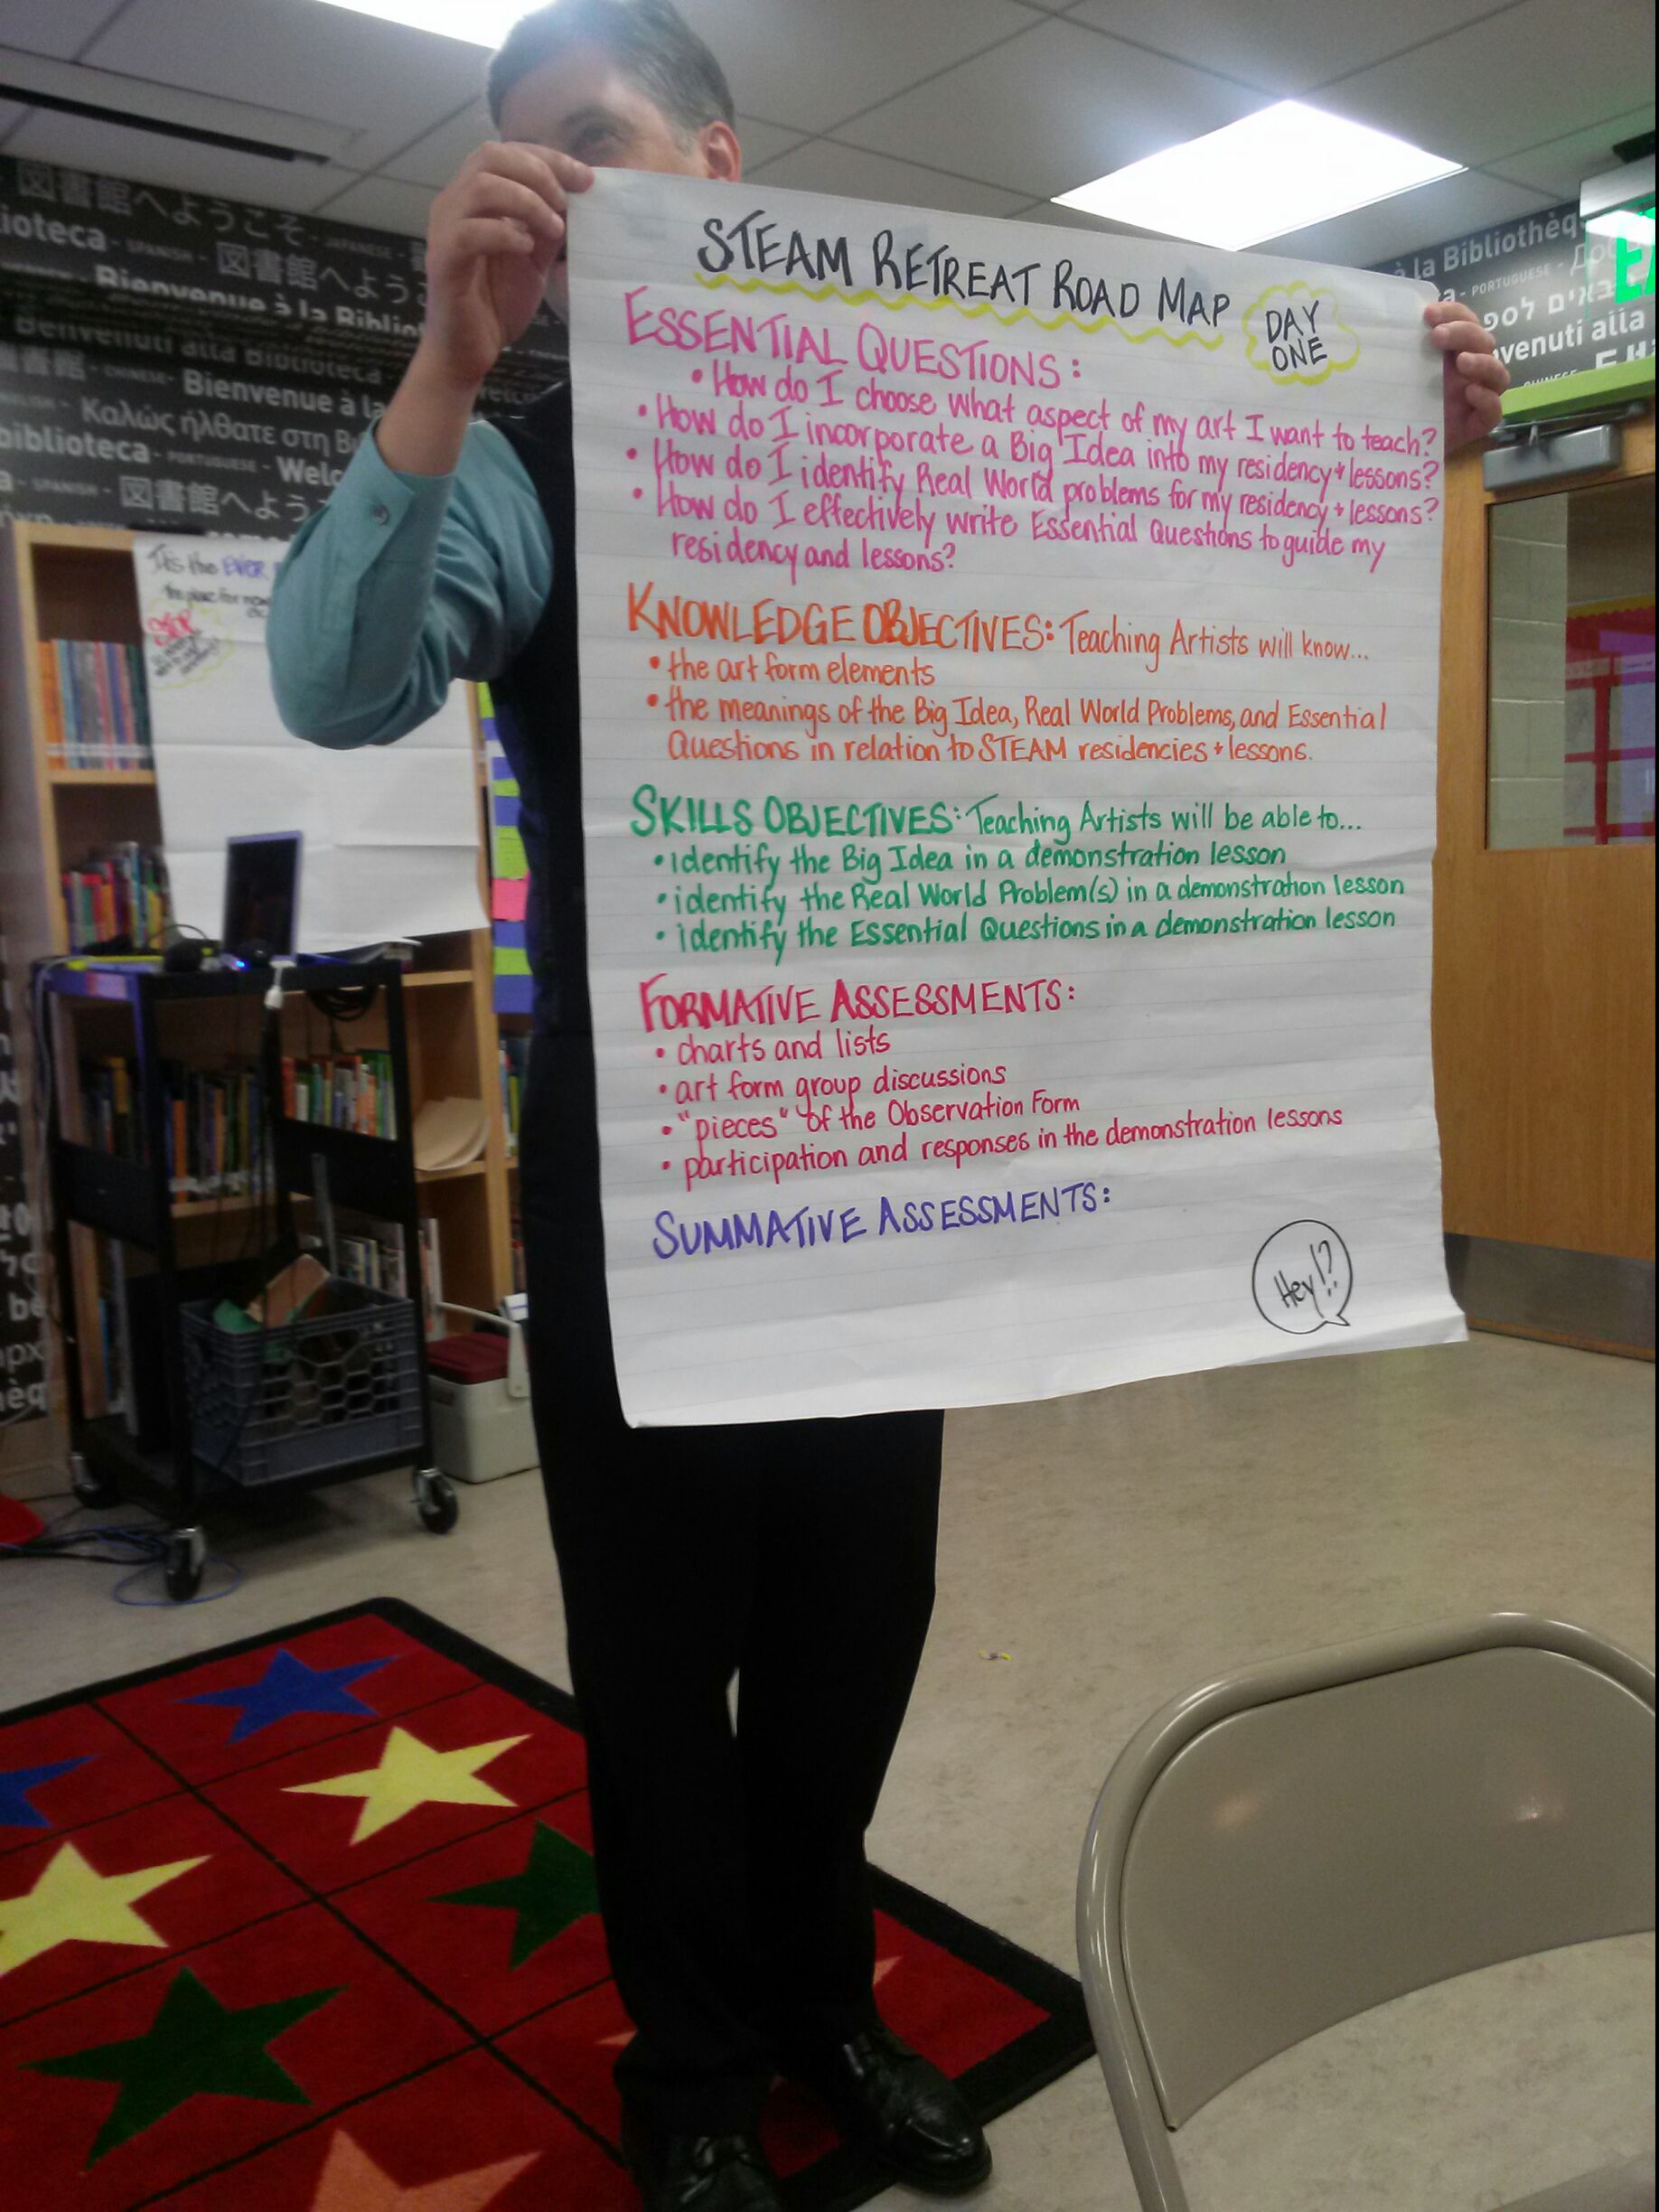 STEAM RETREAT ROAD MAP
DAY
ONE
ESSENTIAL QUESTIONS:
• How do I choose what aspect of my art I want to teach?
• How do I incorporate a Big Idea into my residency + lessons?
• How do I identify Real World problems for my residency + lessons?
• How do I effectively write Essential Questions to guide my
residency and lessons?
KNOWLEDGE OBJECTIVES: Teaching Artists will know...
• the art form elements
• the meanings of the Big Idea, Real World Problems, and Essential
Questions in relation to STEAM residencies + lessons.
SKILLS OBJECTIVES: Teaching Artists will be able to...
• identify the Big Idea in a demonstration lesson
• identify the Real World Problem(s) in a demonstration lesson
• identify the Essential Questions in a demonstration lesson
FORMATIVE ASSESSMENTS:
• charts and lists
• art form group discussions
• "pieces" of the Observation Form
• participation and responses in the demonstration lessons
SUMMATIVE ASSESSMENTS:
Hey!?
図書館へようこそ - JAPANESE -
ioteca - SPANISH - 図書館へようこ
Bienvenue à la Biblio
Benvenuti alla Biblioteca
CHINESE - Bienvenue à la
Καλώς ήλθατε στη Βι
biblioteca - PORTUGUESE - Welc
SPANISH - 図書館へようこ
It's the EVER
the place for
à la Bibliothèq
PORTUGUESE -
venuti alla
CHINESE